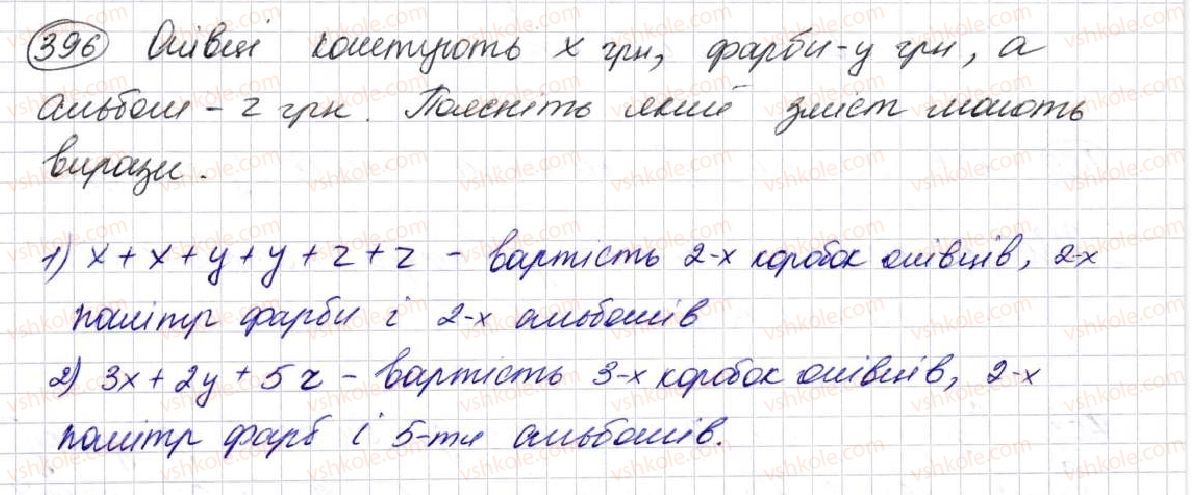 396 Олівці коштують x грн, фарби - y грн, а
альбом - z грн. Поясніть який зміст мають
вирази.
1) x + x + y + y + z + z - вартість 2-х коробок олівців, 2-х
палітр фарби і 2-х альбомів
2) 3x + 2y + 5z - вартість 3-х коробок олівців, 2-х
палітр фарб і 5-ти альбомів.